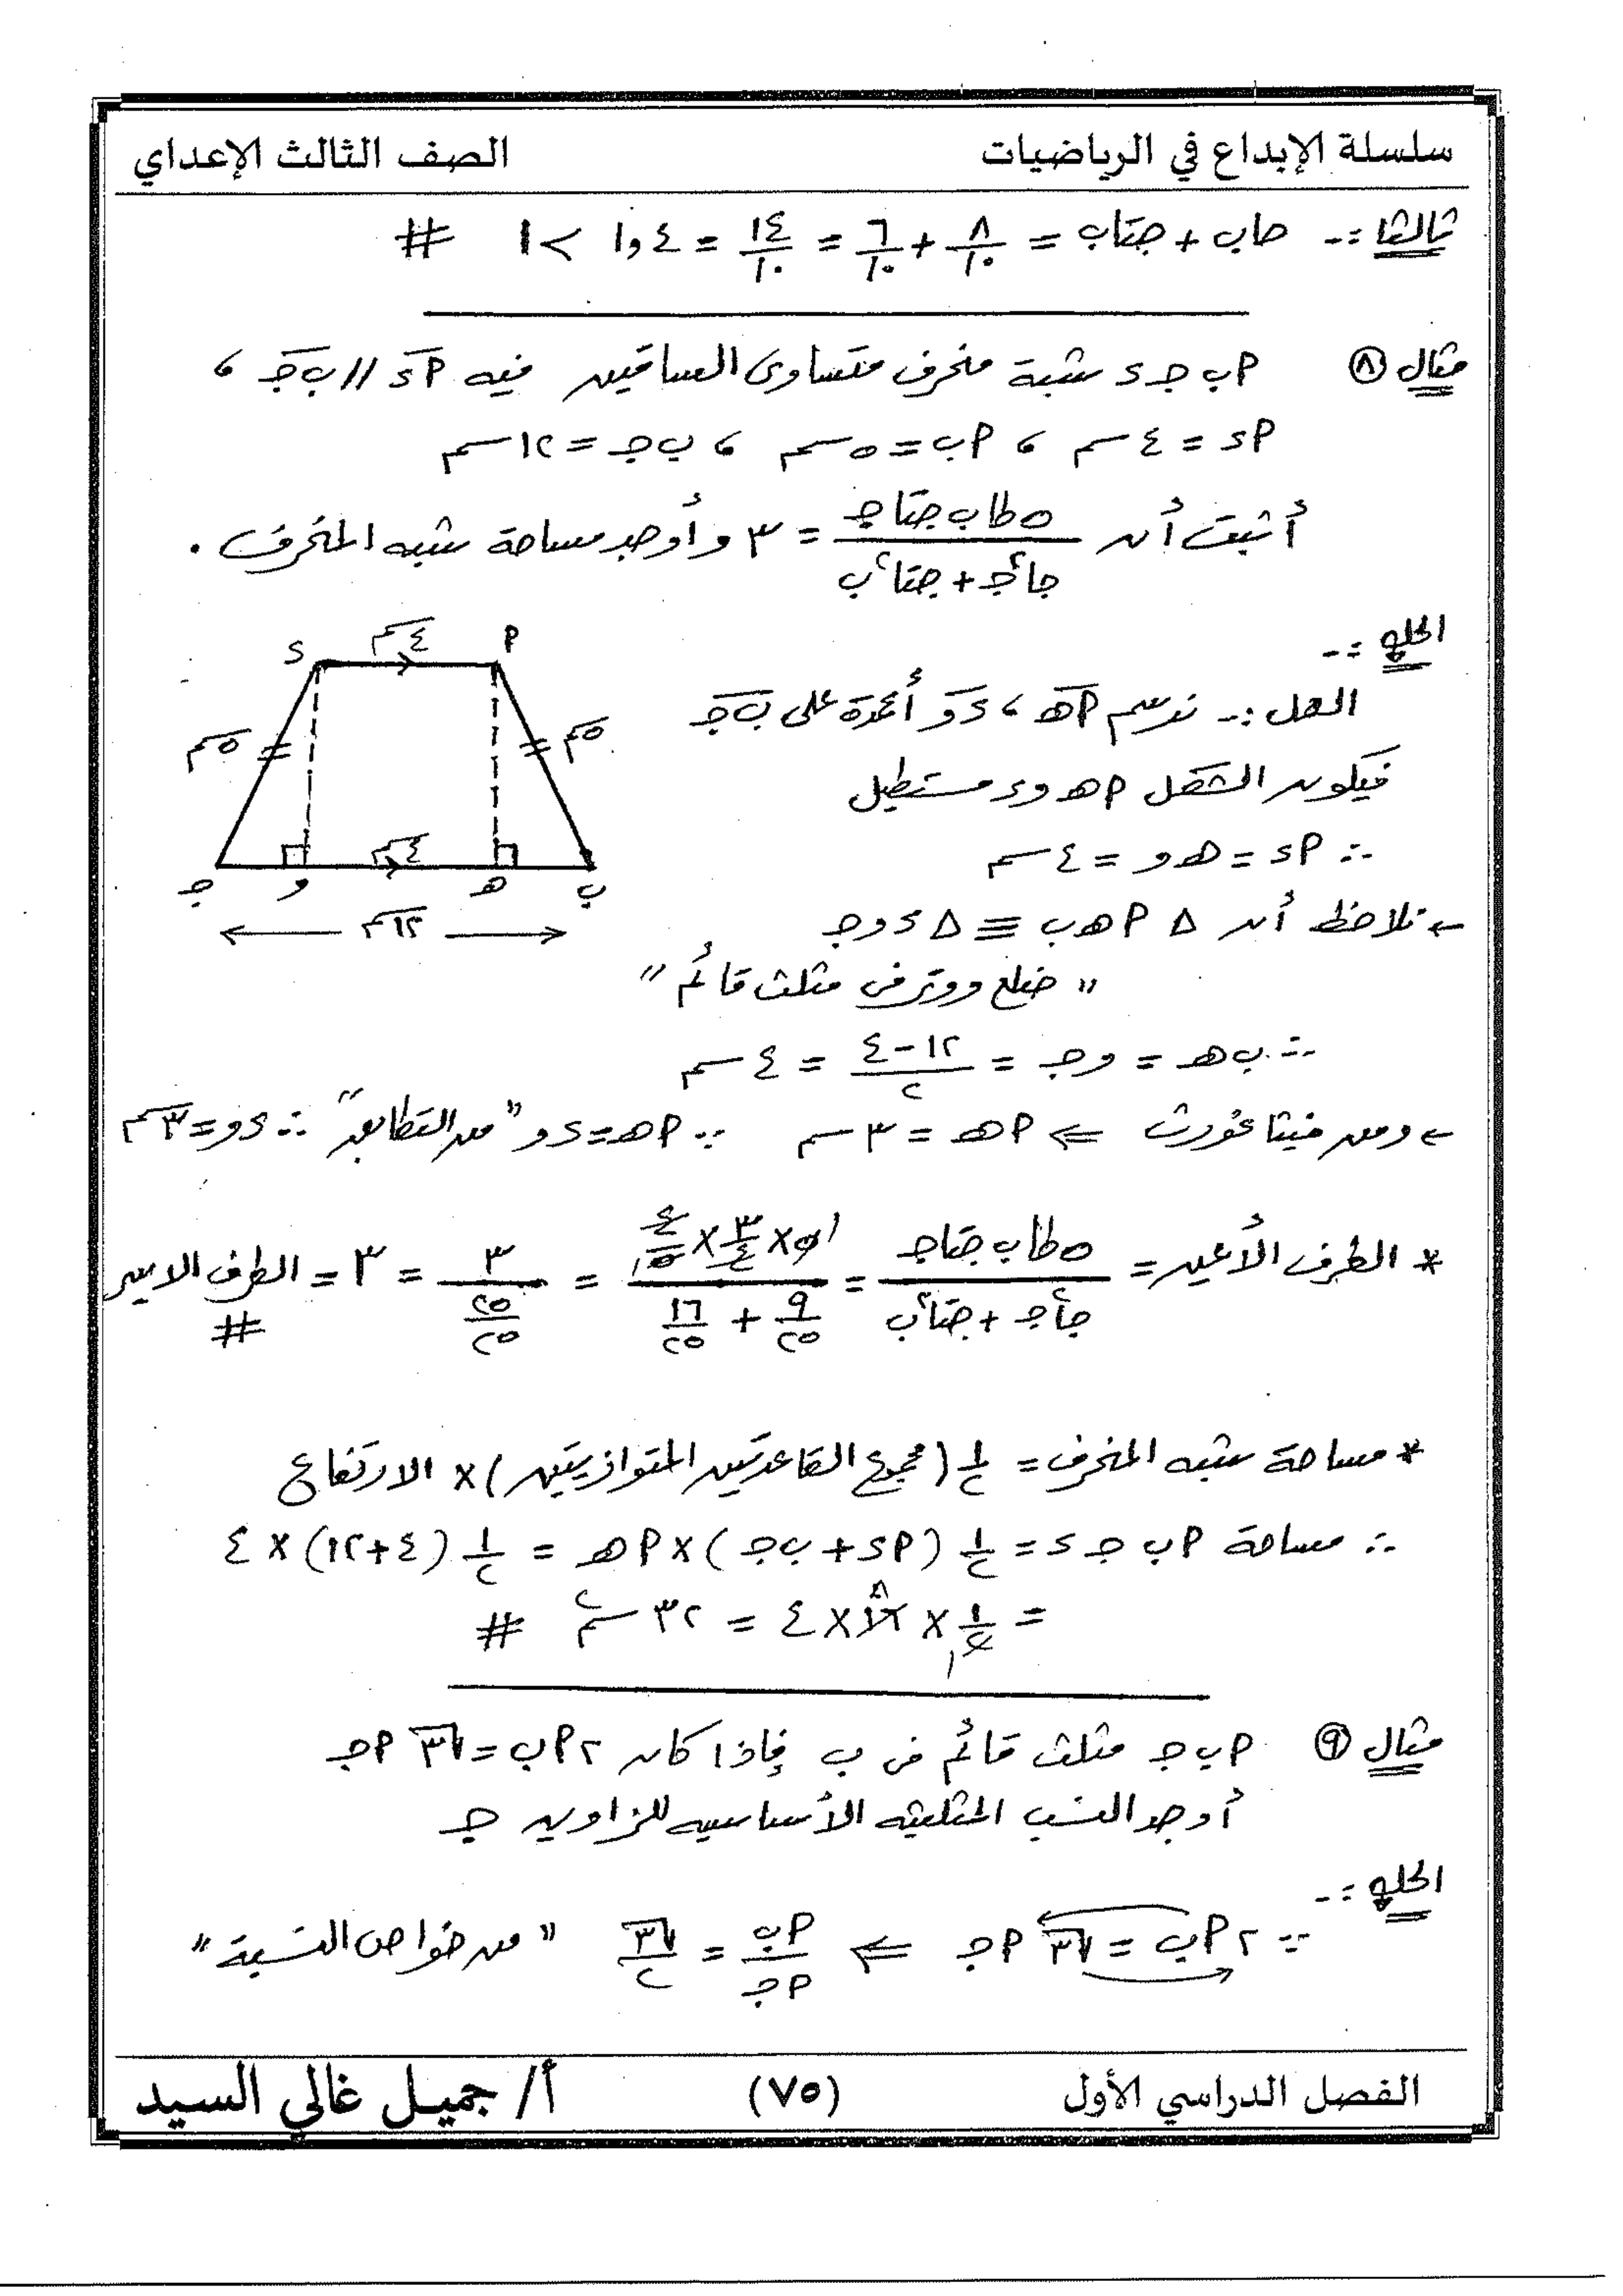 سلسلة الإبداع في الرياضيات الصف الثالث الإعداي
ثالثا :- حاب + جتاب = ٨/١٠ + ٦/١٠ = ١٤/١٠ = ١,٤ > ١ #
مثال ⑧ أ ب جـ د شبة منحرف متساوى الساقين فيه أد // ب جـ ،
أد = ٤ سم ، أب = ٥ سم ، ب جـ = ١٢ سم
أثبت أن ٥ طاب جتاجـ / جا٢جـ + جتا٢ب = ٣ و أوجد مساحة شبه المنحرف .
الحل :-
د ٤سم أ
العمل :- نرسم أهـ ، دو أعمدة على ب جـ
٥سم ٥سم
فيكون الشكل أ هـ و د مستطيل
٤سم
∴ أد = هـ و = ٤ سم
جـ و هـ ب
١٢سم
← نلاحظ أن Δ أ هـ ب ≡ Δ د و جـ
" ضلع ووتر فى مثلث قائم "
∴ ب هـ = و جـ = ١٢ - ٤ / ٢ = ٤ سم
← ومن فيثاغورث ⇐ أهـ = ٣ سم ∵ أهـ = د و " من التطابق " ∴ د و = ٣سم
* الطرف الأيمن = ٥ طاب جتاجـ / جا٢جـ + جتا٢ب = ٥ × ٣/٤ × ٤/٥ / ٩/٢٥ + ١٦/٢٥ = ٣ / ٢٥/٢٥ = ٣ = الطرف الايسر #
* مساحة شبه المنحرف = ١/٢ ( مجموع القاعدتين المتوازيتين ) × الارتفاع
∴ مساحة أ ب جـ د = ١/٢ ( أد + ب جـ ) × أهـ = ١/٢ ( ٤ + ١٢ ) × ٤
= ١/٢ × ١٦ × ٤ = ٣٢ سم٢ #
مثال ⑨ أ ب جـ مثلث قائم فى ب فإذا كان ٢ أب = √٣ أجـ
أوجد النسب المثلثيه الأساسيه للزاويه جـ
الحل :-
∵ ٢ أب = √٣ أجـ ⇐ أب/أجـ = √٣/٢ " من خواص النسبة "
الفصل الدراسي الأول (٧٥) أ/ جميل غالي السيد